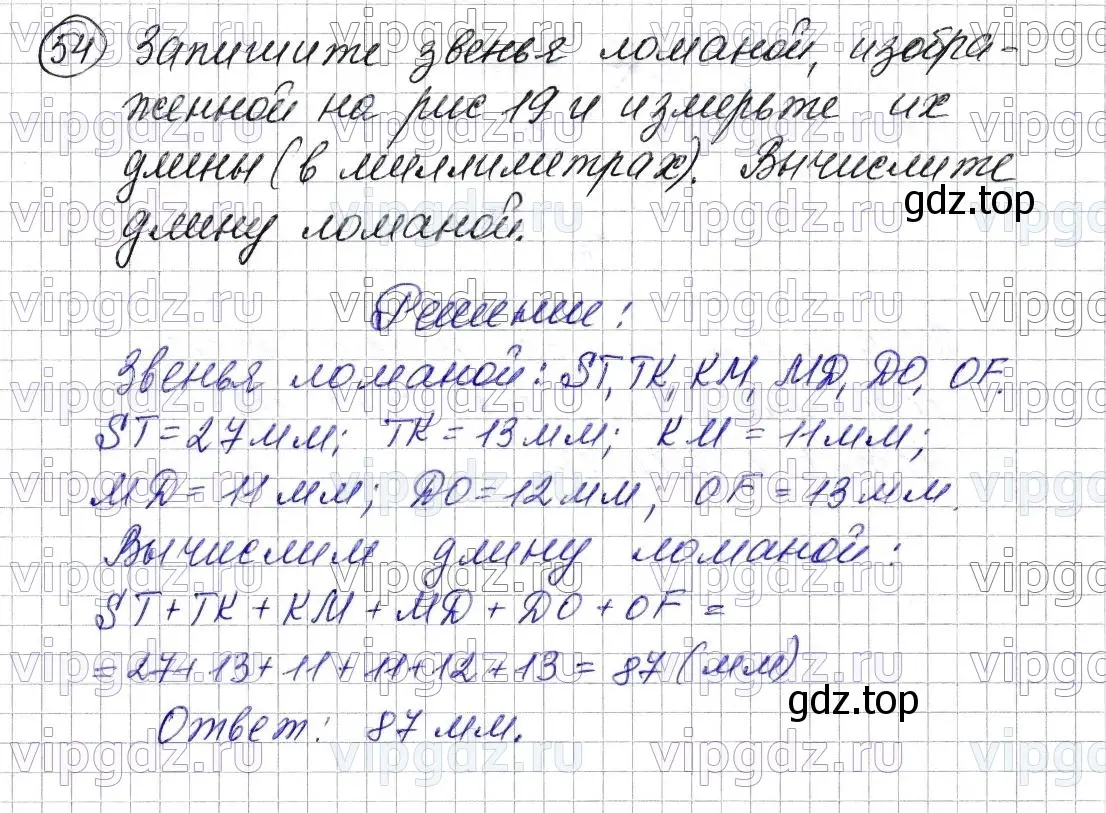 54 Запишите звенья ломаной, изобра-
женной на рис 19 и измерьте их
длины (в миллиметрах). Вычислите
длину ломаной.
gdz.top
Решение:
Звенья ломаной: ST, TK, KM, MD, DO, OF.
ST = 27 мм; TK = 13 мм; KM = 11 мм;
MD = 11 мм; DO = 12 мм; OF = 13 мм.
Вычислим длину ломаной:
ST + TK + KM + MD + DO + OF =
= 27 + 13 + 11 + 11 + 12 + 13 = 87 (мм)
gdz.top
Ответ: 87 мм.
vipgdz.ru